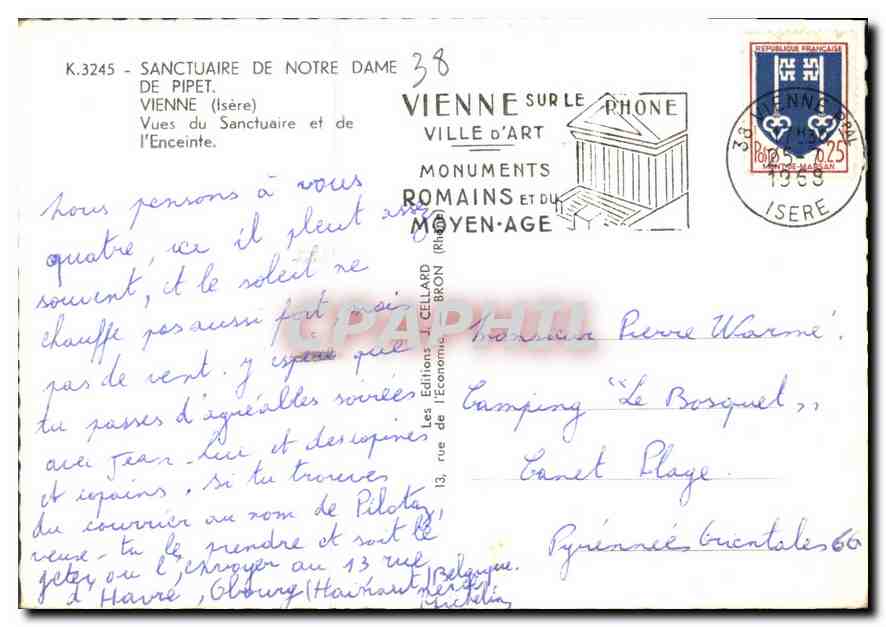 K.3245 - SANCTUAIRE DE NOTRE DAME
DE PIPET.
VIENNE (Isère)
Vues du Sanctuaire et de
l'Enceinte.
38
VIENNE SUR LE RHONE
VILLE D'ART
MONUMENTS
ROMAINS ET DU
MOYEN-AGE
REPUBLIQUE FRANÇAISE
0.25
MONT-DE-MARSAN
38 VIENNE PPAL
25-7
1969
ISERE
nous pensons à vous
quatre, ice il pleut assez
souvent, et le soleil ne
chauffe pas aussi fort mais
pas de vent. y espère que
tu passes d'agréables soirées
avec Jean-Luc et des copines
et copains, si tu trouves
du courrier au nom de Pilotaz,
veuse-tu le prendre et soit le
jeter, ou l'envoyer au 13 rue
d'Havré, Obourg (Hainaut) Belgique.
merci
Michelin
Les Editions J. CELLARD
13, rue de l'Economie BRON (Rhône)
CPAPHIL
Monsieur Pierre Warmé.
Camping "Le Bosquel"
Canet Plage.
Pyrénneés Orientales 66